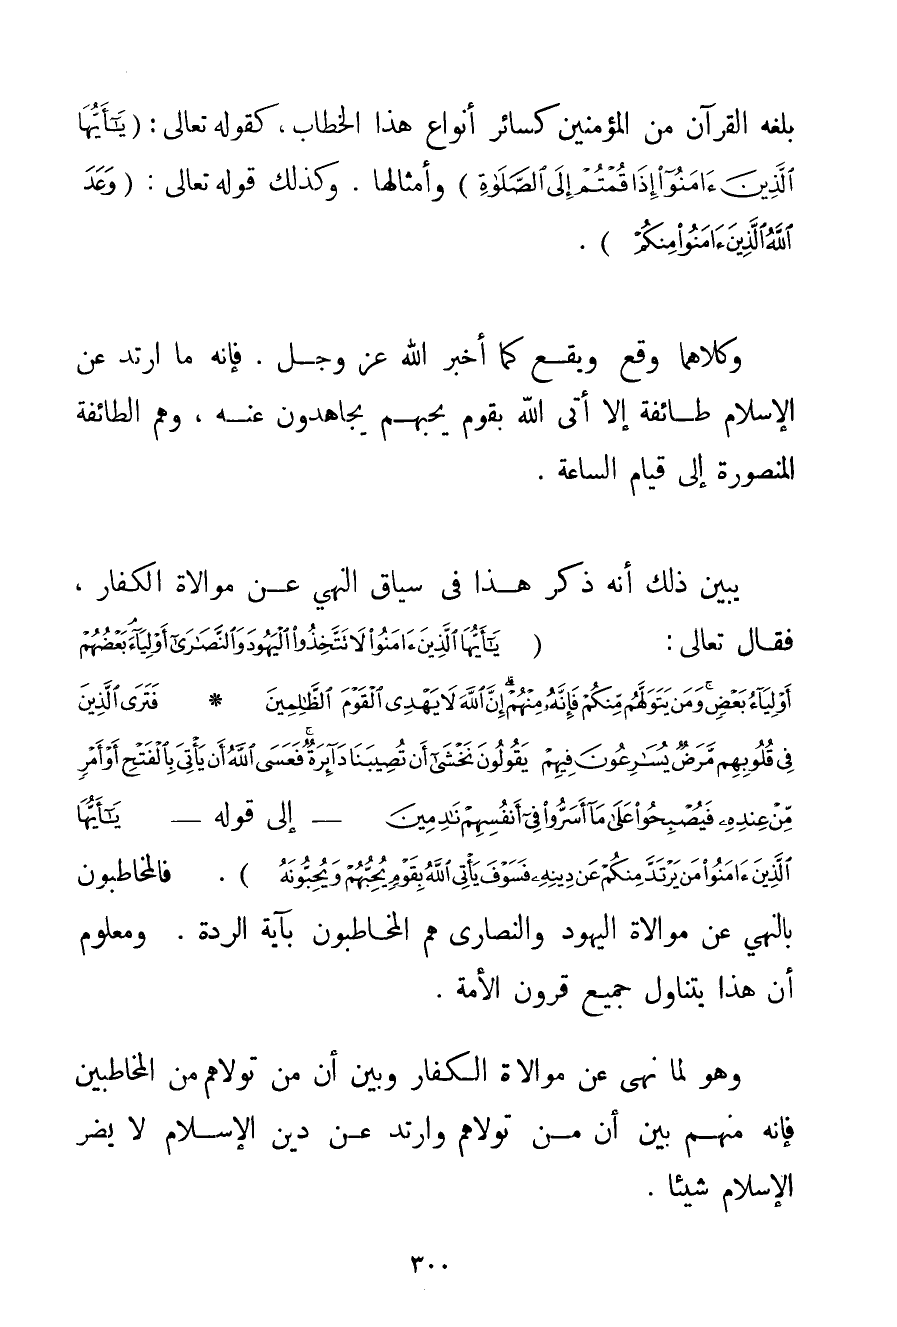 بلغه القرآن من المؤمنين كسائر أنواع هذا الخطاب ، كقوله تعالى : ( يَٰٓأَيُّهَا
ٱلَّذِينَ ءَامَنُوٓاْ إِذَا قُمۡتُمۡ إِلَى ٱلصَّلَوٰةِ ) وأمثالها . وكذلك قوله تعالى : ( وَعَدَ
ٱللَّهُ ٱلَّذِينَ ءَامَنُواْ مِنكُمۡ ) .
وكلاهما وقع ويقع كما أخبر الله عز وجل . فإنه ما ارتد عن
الإسلام طائفة إلا أتى الله بقوم يحبهم يجاهدون عنه ، وهم الطائفة
المنصورة إلى قيام الساعة .
يبين ذلك أنه ذكر هذا فى سياق النهي عن موالاة الكفار ،
فقال تعالى : ( يَٰٓأَيُّهَا ٱلَّذِينَ ءَامَنُواْ لَا تَتَّخِذُواْ ٱلۡيَهُودَ وَٱلنَّصَٰرَىٰٓ أَوۡلِيَآءَۘ بَعۡضُهُمۡ
أَوۡلِيَآءُ بَعۡضٖۚ وَمَن يَتَوَلَّهُم مِّنكُمۡ فَإِنَّهُۥ مِنۡهُمۡۗ إِنَّ ٱللَّهَ لَا يَهۡدِى ٱلۡقَوۡمَ ٱلظَّٰلِمِينَ * فَتَرَى ٱلَّذِينَ
فِى قُلُوبِهِم مَّرَضٞ يُسَٰرِعُونَ فِيهِمۡ يَقُولُونَ نَخۡشَىٰٓ أَن تُصِيبَنَا دَآئِرَةٞۚ فَعَسَى ٱللَّهُ أَن يَأۡتِىَ بِٱلۡفَتۡحِ أَوۡ أَمۡرٖ
مِّنۡ عِندِهِۦ فَيُصۡبِحُواْ عَلَىٰ مَآ أَسَرُّواْ فِىٓ أَنفُسِهِمۡ نَٰدِمِينَ — إلى قوله — يَٰٓأَيُّهَا
ٱلَّذِينَ ءَامَنُواْ مَن يَرۡتَدَّ مِنكُمۡ عَن دِينِهِۦ فَسَوۡفَ يَأۡتِى ٱللَّهُ بِقَوۡمٖ يُحِبُّهُمۡ وَيُحِبُّونَهُ ) . فالمخاطبون
بالنهي عن موالاة اليهود والنصارى هم المخاطبون بآية الردة . ومعلوم
أن هذا يتناول جميع قرون الأمة .
وهو لما نهى عن موالاة الكفار وبين أن من تولاهم من المخاطبين
فإنه منهم بين أن من تولاهم وارتد عن دين الإسلام لا يضر
الإسلام شيئا .
٣٠٠